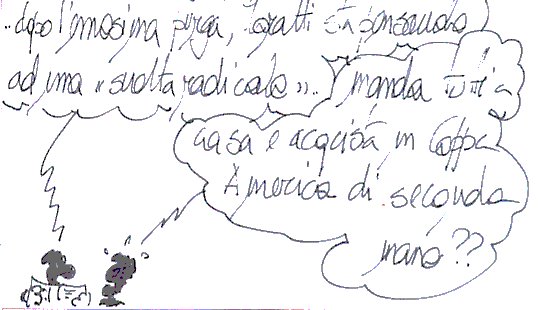 ..dopo l'ennesima purga, Loratti sta pensando
ad una «svolta radicale»..
manda tutti a
casa e acquista in Coppa
America di seconda
mano??